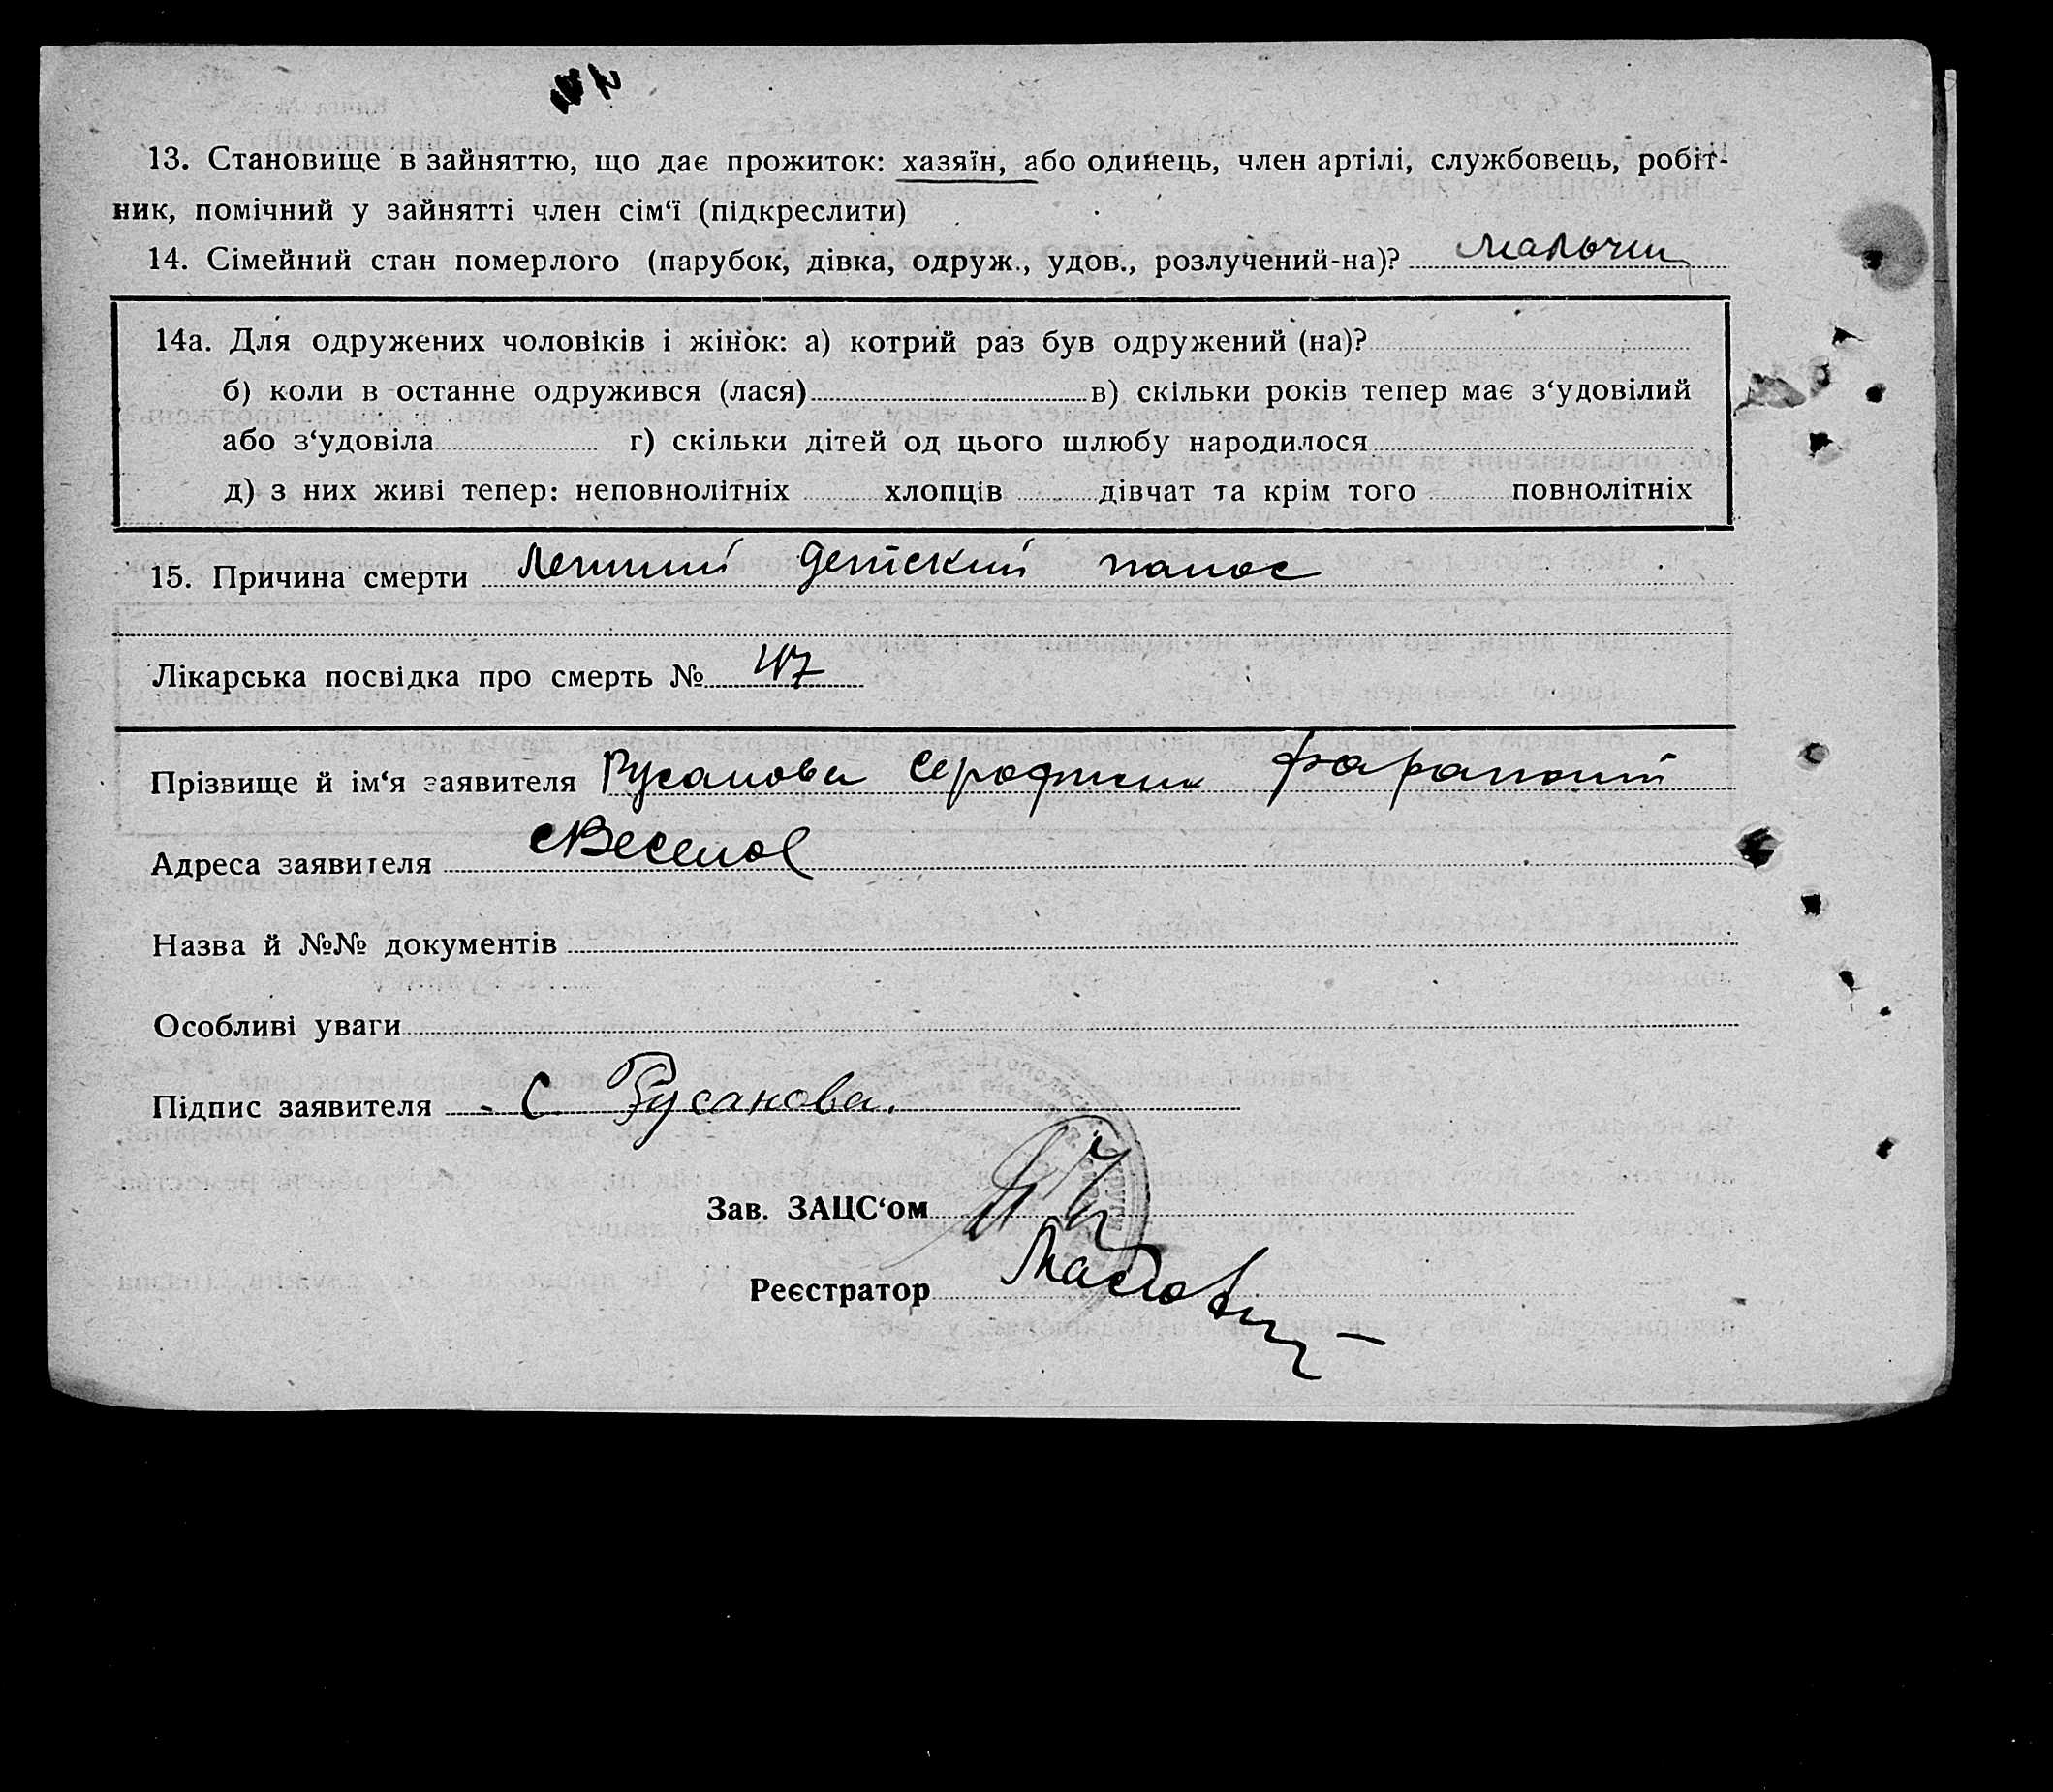 13. Становище в зайняттю, що дає прожиток: хазяїн, або одинець, член артілі, службовець, робіт-
ник, помічний у зайнятті член сім‘ї (підкреслити)
14. Сімейний стан померлого (парубок, дівка, одруж., удов., розлучений-на)?
14а. Для одружених чоловіків і жінок: а) котрий раз був одружений (на)?
б) коли в останне одружився (лася) в) скільки років тепер має з‘удовілий
або з‘удовіла г) скільки дітей од цього шлюбу народилося
д) з них живі тепер: неповнолітніх хлопців дівчат та крім того повнолітніх
15. Причина смерти Летний детский понос
Лікарська посвідка про смерть № 47
Прізвище й ім‘я заявителя Русанова
Адреса заявителя
Назва й №№ документів
Особливі уваги
Підпис заявителя С Русанова.
Зав. ЗАЦС‘ом
Реєстратор